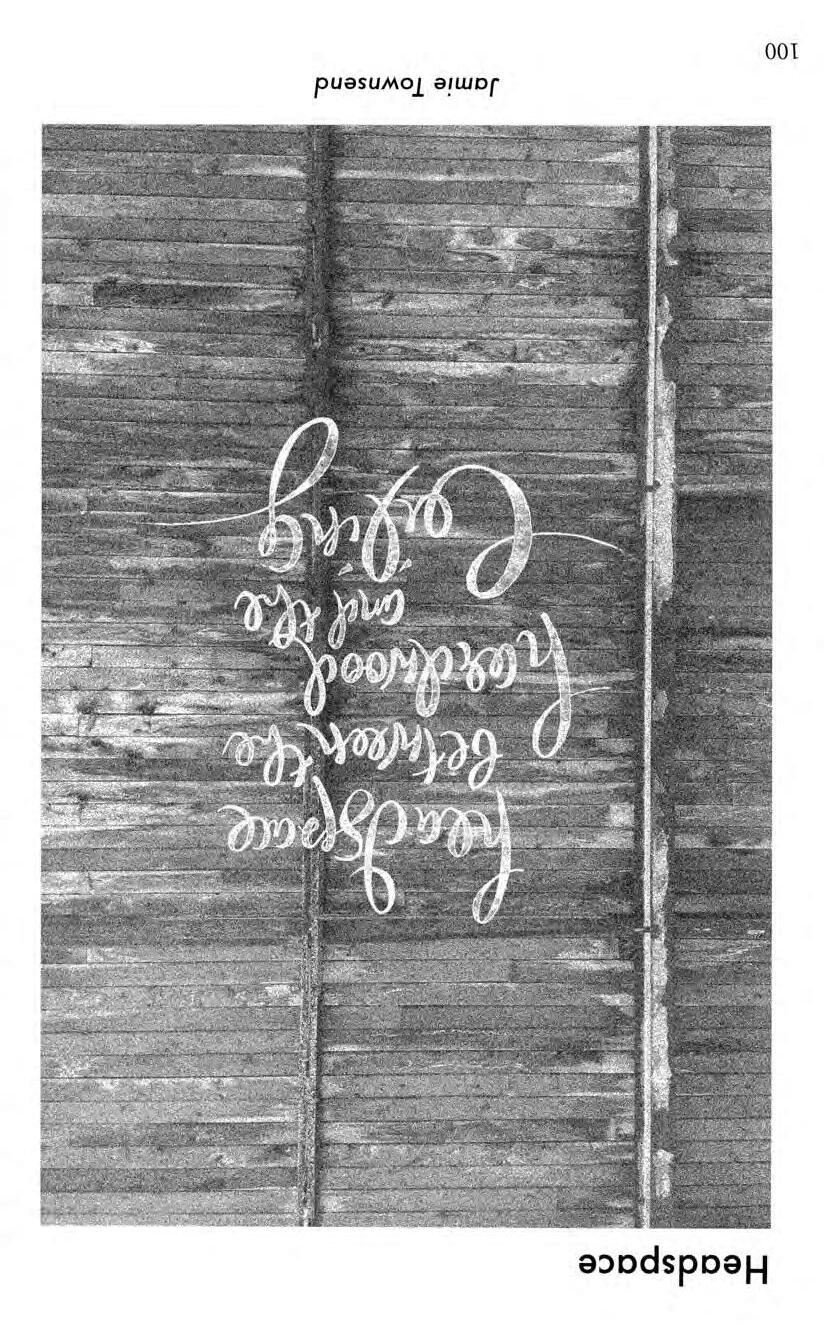 Headspace
headspace
between the
hardwood
and the
Ceiling
Jamie Townsend
100